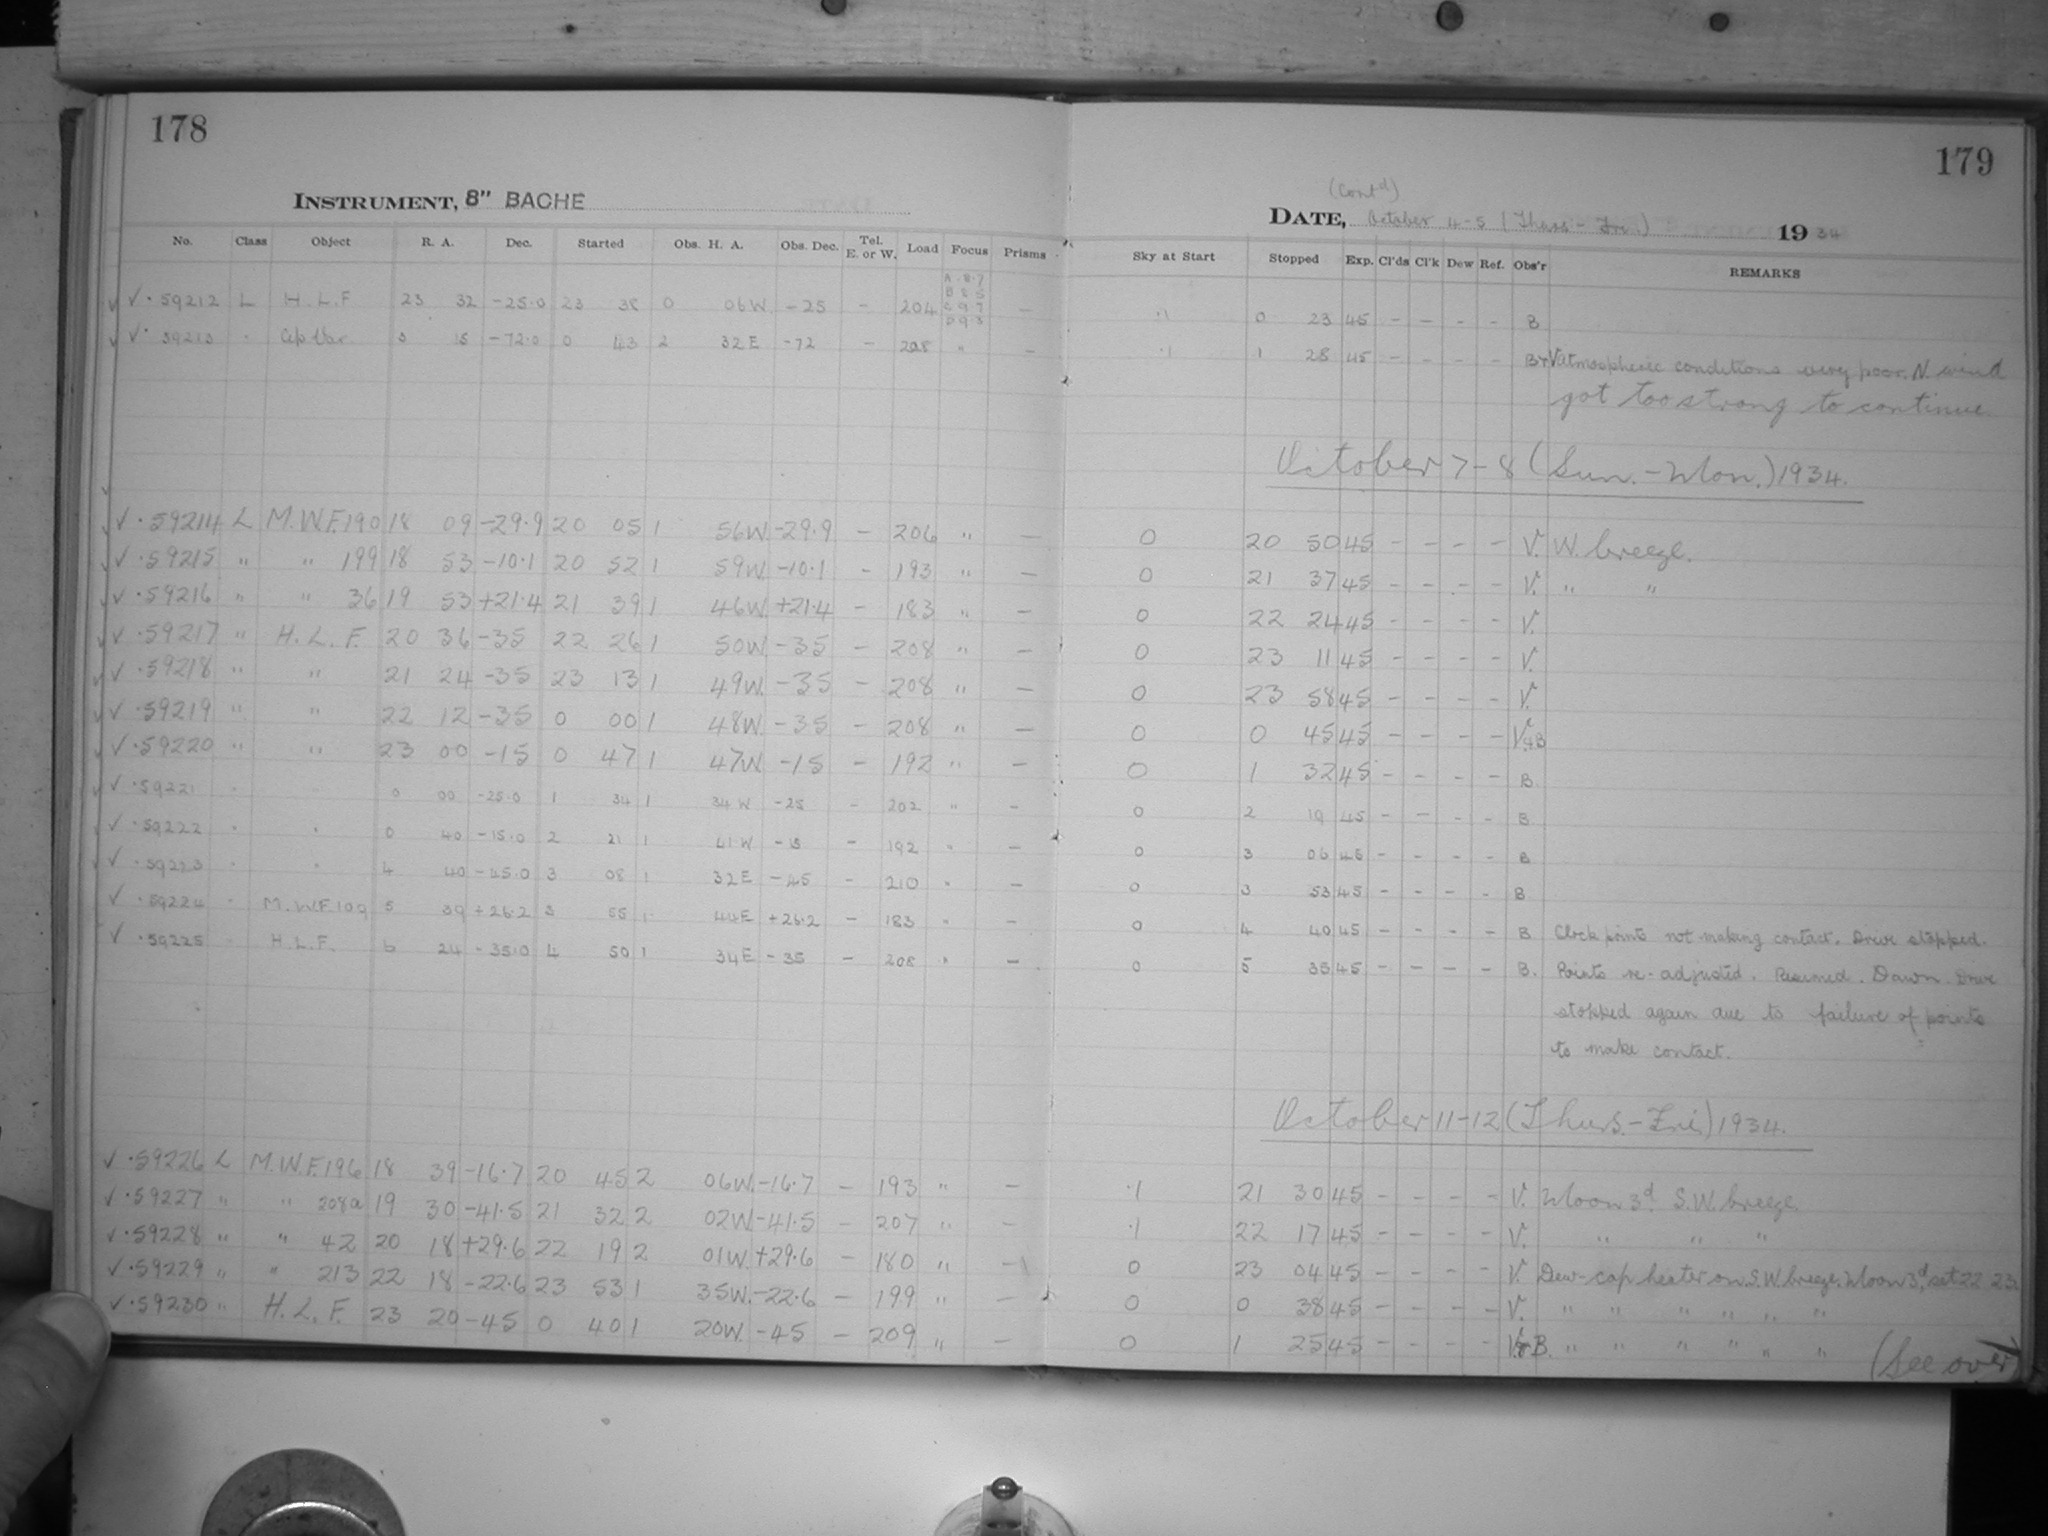 178
INSTRUMENT, 8" BACHE
No. Class Object R. A. Dec. Started Obs. H. A. Obs. Dec. Tel. E. or W. Load Focus Prisms
√ · 59212 L H. L. F 23 32 -25.0 23 38 0 06W. -25 - 204 A 8.7 B 8.5 C 9.7 D 9.3 -
√ · 59213 " 3 15 -72.0 0 43 2 32E -72 - 208 " -
√ · 59214 L M.W.F. 190 18 09 -29.9 20 05 1 56W. -29.9 - 206 " -
√ · 59215 " " 199 18 53 -10.1 20 52 1 59W. -10.1 - 193 " -
√ · 59216 " " 36 19 53 +21.4 21 39 1 46W. +21.4 - 183 " -
√ · 59217 " H. L. F. 20 36 -35 22 26 1 50W. -35 - 208 " -
√ · 59218 " " 21 24 -35 23 13 1 49W. -35 - 208 " -
√ · 59219 " " 22 12 -35 0 00 1 48W. -35 - 208 " -
√ · 59220 " " 23 00 -15 0 47 1 47W. -15 - 192 " -
√ · 59221 " " 0 00 -25.0 1 34 1 34W -25 - 202 " -
√ · 59222 " " 0 40 -15.0 2 21 1 41W -15 - 192 " -
√ · 59223 " " 4 40 -45.0 3 08 1 32E -45 - 210 " -
√ · 59224 " M.W.F. 109 5 39 +26.2 3 55 1 44E +26.2 - 183 " -
√ · 59225 " H. L. F. 6 24 -35.0 4 50 1 34E -35 - 208 " -
√ · 59226 L M.W.F. 196 18 39 -16.7 20 45 2 06W. -16.7 - 193 " -
√ · 59227 " " 208a 19 30 -41.5 21 32 2 02W. -41.5 - 207 " -
√ · 59228 " " 42 20 18 +29.6 22 19 2 01W. +29.6 - 180 " -
√ · 59229 " " 213 22 18 -22.6 23 53 1 35W. -22.6 - 199 " -
√ · 59230 " H. L. F. 23 20 -45 0 40 1 20W. -45 - 209 " -
179
(Contd)
DATE, October 4-5 (Thurs - Fri) 1934
Sky at Start Stopped Exp. Cl'ds Cl'k Dew Ref. Obs'r REMARKS
.1 0 23 45 - - - - B
.1 1 28 45 - - - - B+V atmospheric conditions very poor. N. wind
got too strong to continue
October 7-8 (Sun. - Mon.) 1934.
0 20 50 45 - - - - V. W. breeze.
0 21 37 45 - - - - V. " "
0 22 24 45 - - - - V.
0 23 11 45 - - - - V.
0 23 58 45 - - - - V.
0 0 45 45 - - - - V.&B
0 1 32 45 - - - - B
0 2 19 45 - - - - B
0 3 06 45 - - - - B
0 3 53 45 - - - - B
0 4 40 45 - - - - B Clock points not making contact. Drive stopped.
0 5 35 45 - - - - B. Points re-adjusted. Resumed. Dawn. Drive
stopped again due to failure of points
to make contact.
October 11-12 (Thurs. - Fri.) 1934.
.1 21 30 45 - - - - V. Moon 3d S.W. breeze.
.1 22 17 45 - - - - V. " " "
0 23 04 45 - - - - V. Dew-cap heater on. S.W. breeze. Moon 3d, set 22 23
0 0 38 45 - - - - V. " " " " " "
0 1 25 45 - - - - V.& B. " " " " " "
(See over)